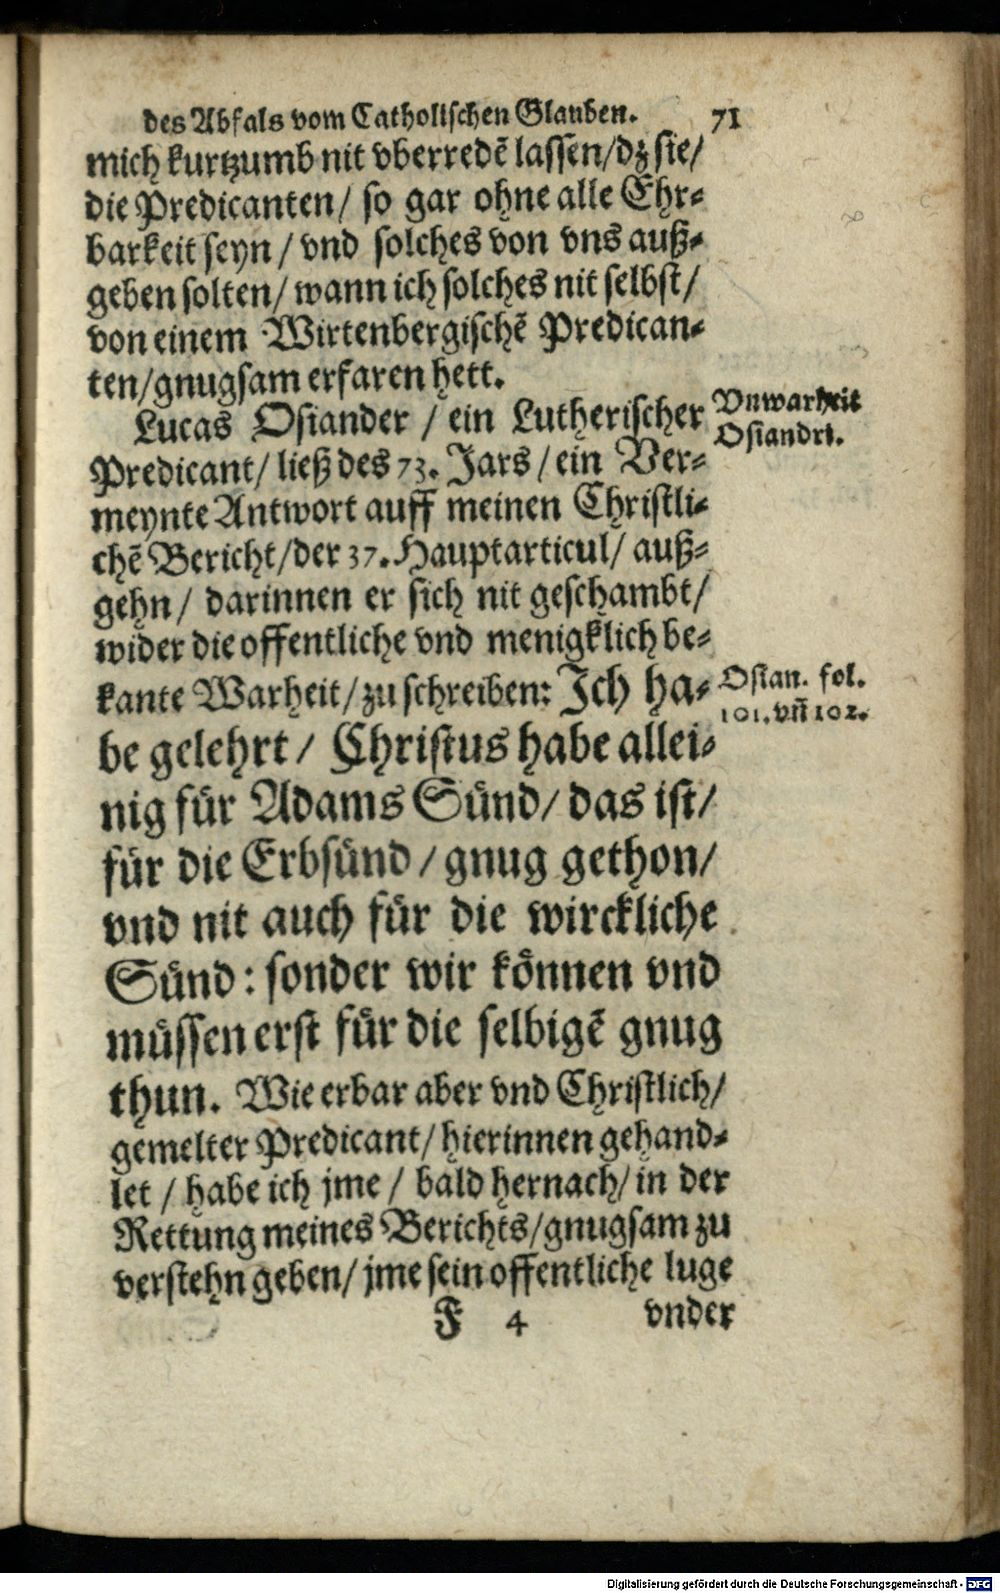 des Abfals vom Catholischen Glauben. 71
mich kurtzumb nit vberredē lassen/dz sie/
die Predicanten/ so gar ohne alle Ehr-
barkeit seyn/ vnd solches von vns auß-
geben solten/ wann ich solches nit selbst/
von einem Wirtenbergischē Predican-
ten/gnugsam erfaren hett.
Lucas Osiander / ein Lutherischer
Vnwarheit
Osiandri.
Predicant/ ließ des 73. Jars/ein Ver-
meynte Antwort auff meinen Christli-
chē Bericht/der 37. Hauptarticul/ auß-
gehn/ darinnen er sich nit geschambt/
wider die offentliche vnd menigklich be-
kante Warheit/zu schreiben: Ich ha-
Osian. fol.
101. vn̄ 102.
be gelehrt/ Christus habe allei-
nig für Adams Sünd/ das ist/
für die Erbsünd/gnug gethon/
vnd nit auch für die wirckliche
Sünd: sonder wir können vnd
müssen erst für die selbigē gnug
thun. Wie erbar aber vnd Christlich/
gemelter Predicant/hierinnen gehand-
let / habe ich jme / bald hernach/in der
Rettung meines Berichts/gnugsam zu
verstehn geben/ jme sein offentliche luge
F 4 vnder
Digitalisierung gefördert durch die Deutsche Forschungsgemeinschaft - DFG